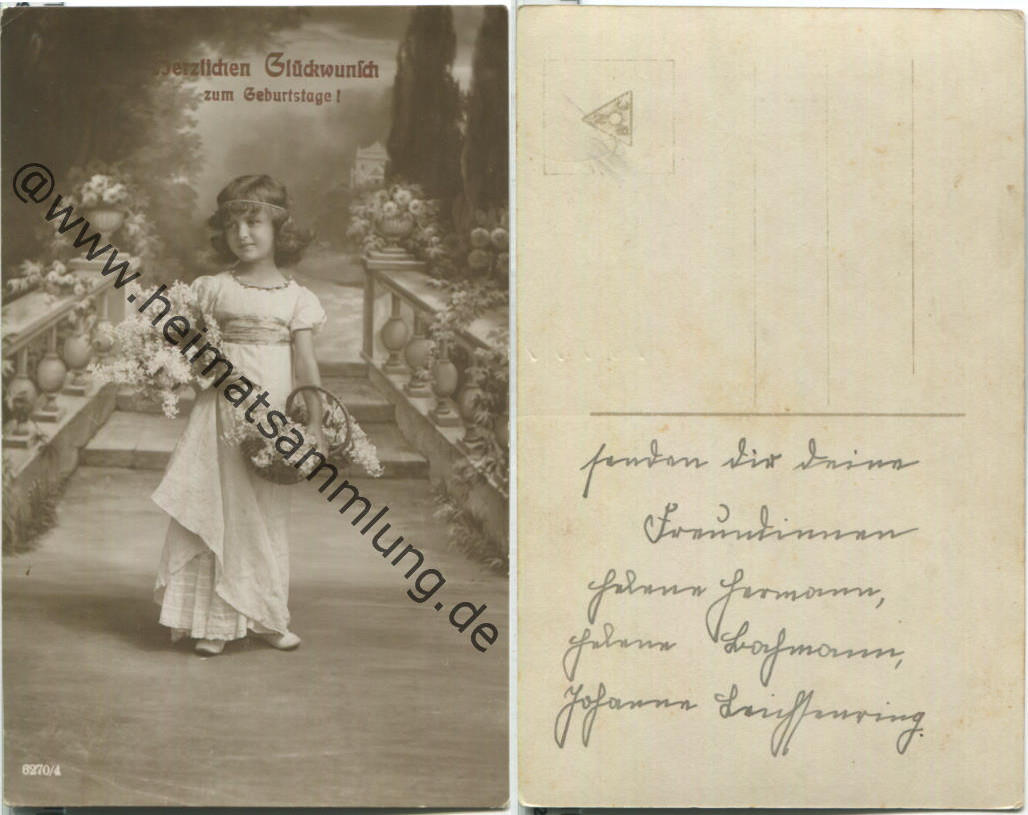 Herzlichen Glückwunsch
zum Geburtstage!
@www.heimatsammlung.de
6270/4
senden dir deine
Freundinnen
Helene Hermann,
Helene Bachmann,
Johanne Leichsenring.